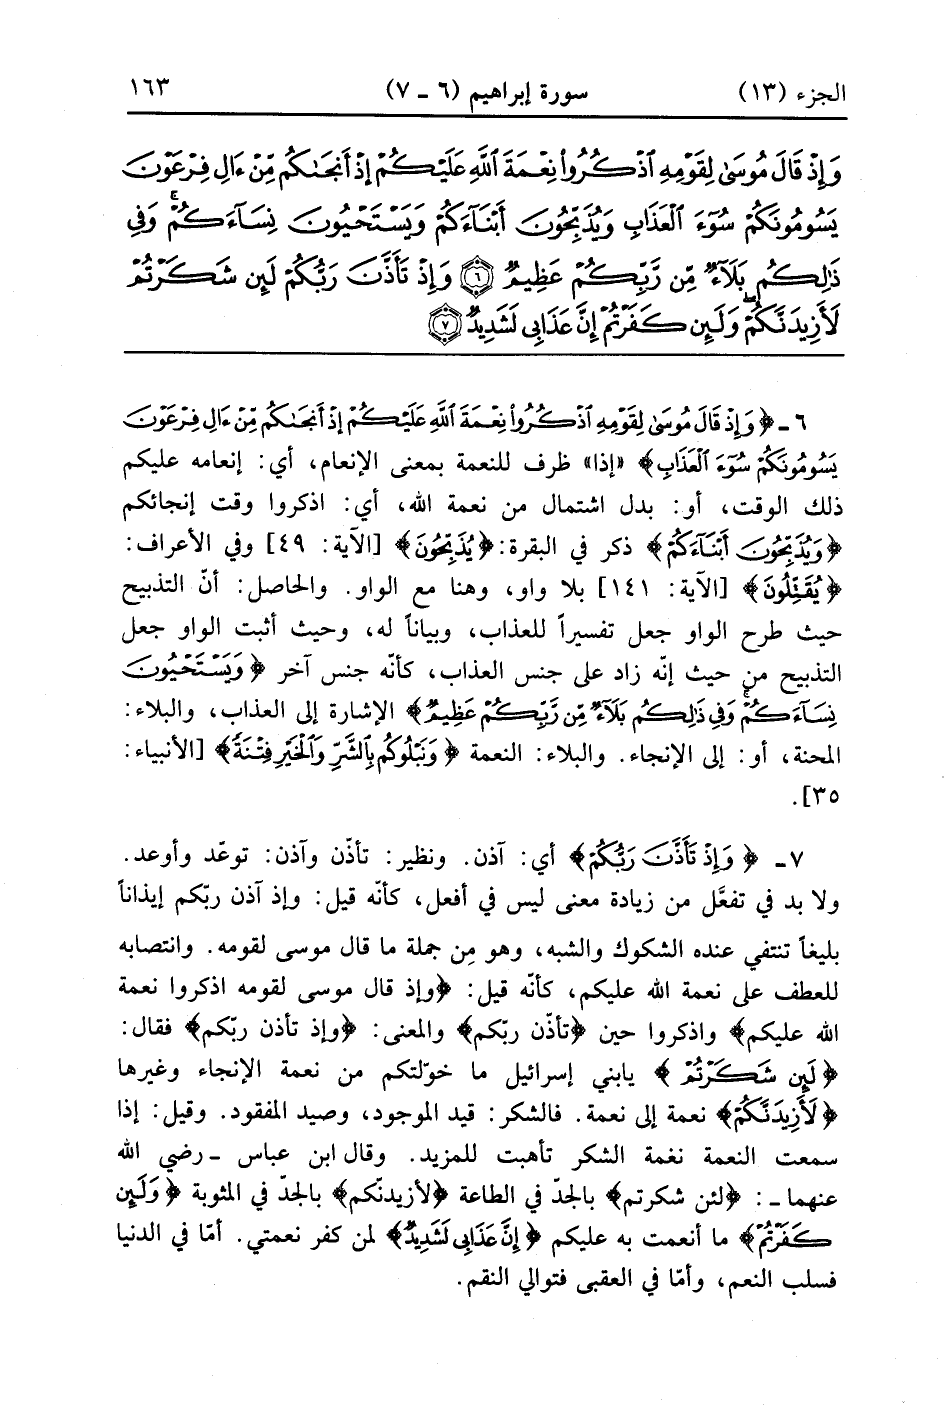 الجزء (١٣) سورة إبراهيم (٦ ـ ٧) ١٦٣
وَإِذْ قَالَ مُوسَىٰ لِقَوْمِهِ ٱذْكُرُوا۟ نِعْمَةَ ٱللَّهِ عَلَيْكُمْ إِذْ أَنجَىٰكُم مِّنْ ءَالِ فِرْعَوْنَ
يَسُومُونَكُمْ سُوٓءَ ٱلْعَذَابِ وَيُذَبِّحُونَ أَبْنَآءَكُمْ وَيَسْتَحْيُونَ نِسَآءَكُمْ ۚ وَفِى
ذَٰلِكُم بَلَآءٌ مِّن رَّبِّكُمْ عَظِيمٌ ٦ وَإِذْ تَأَذَّنَ رَبُّكُمْ لَئِن شَكَرْتُمْ
لَأَزِيدَنَّكُمْ ۖ وَلَئِن كَفَرْتُمْ إِنَّ عَذَابِى لَشَدِيدٌ ٧
٦ ـ ﴿وَإِذْ قَالَ مُوسَىٰ لِقَوْمِهِ ٱذْكُرُوا۟ نِعْمَةَ ٱللَّهِ عَلَيْكُمْ إِذْ أَنجَىٰكُم مِّنْ ءَالِ فِرْعَوْنَ
يَسُومُونَكُمْ سُوٓءَ ٱلْعَذَابِ﴾ «إذا» ظرف للنعمة بمعنى الإنعام، أي: إنعامه عليكم
ذلك الوقت، أو: بدل اشتمال من نعمة الله، أي: اذكروا وقت إنجائكم
﴿وَيُذَبِّحُونَ أَبْنَآءَكُمْ﴾ ذكر في البقرة: ﴿يُذَبِّحُونَ﴾ [الآية: ٤٩] وفي الأعراف:
﴿يُقَتِّلُونَ﴾ [الآية: ١٤١] بلا واو، وهنا مع الواو. والحاصل: أنّ التذبيح
حيث طرح الواو جعل تفسيراً للعذاب، وبياناً له، وحيث أثبت الواو جعل
التذبيح من حيث إنّه زاد على جنس العذاب، كأنّه جنس آخر ﴿وَيَسْتَحْيُونَ
نِسَآءَكُمْ ۚ وَفِى ذَٰلِكُم بَلَآءٌ مِّن رَّبِّكُمْ عَظِيمٌ﴾ الإشارة إلى العذاب، والبلاء:
المحنة، أو: إلى الإنجاء. والبلاء: النعمة ﴿وَنَبْلُوكُم بِٱلشَّرِّ وَٱلْخَيْرِ فِتْنَةً﴾ [الأنبياء:
٣٥].
٧ ـ ﴿وَإِذْ تَأَذَّنَ رَبُّكُمْ﴾ أي: آذن. ونظير: تأذّن وآذن: توعّد وأوعد.
ولا بد في تفعَّل من زيادة معنى ليس في أفعل، كأنّه قيل: وإذ آذن ربّكم إيذاناً
بليغاً تنتفي عنده الشكوك والشبه، وهو مِن جملة ما قال موسى لقومه. وانتصابه
للعطف على نعمة الله عليكم، كأنّه قيل: ﴿وإذ قال موسى لقومه اذكروا نعمة
الله عليكم﴾ واذكروا حين ﴿تأذّن ربّكم﴾ والمعنى: ﴿وإذ تأذن ربّكم﴾ فقال:
﴿لَئِن شَكَرْتُمْ﴾ يابني إسرائيل ما خوّلتكم من نعمة الإنجاء وغيرها
﴿لَأَزِيدَنَّكُمْ﴾ نعمة إلى نعمة. فالشكر: قيد الموجود، وصيد المفقود. وقيل: إذا
سمعت النعمة نغمة الشكر تأهبت للمزيد. وقال ابن عباس ـ رضي الله
عنهما ـ: ﴿لئن شكرتم﴾ بالجدّ في الطاعة ﴿لأزيدنّكم﴾ بالجدّ في المثوبة ﴿وَلَئِن
كَفَرْتُمْ﴾ ما أنعمت به عليكم ﴿إِنَّ عَذَابِى لَشَدِيدٌ﴾ لمن كفر نعمتي. أمّا في الدنيا
فسلب النعم، وأمّا في العقبى فتوالي النقم.